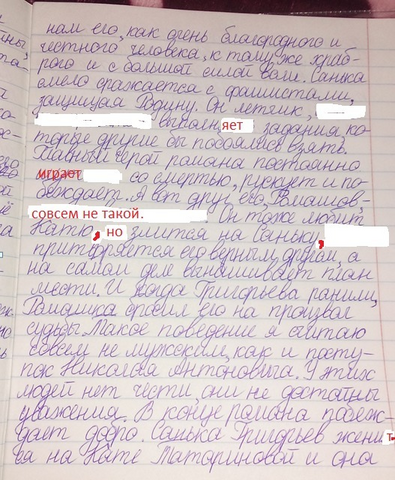 нам его, как очень благородного и
честного человека, к тому же храб-
рого и с большой силой воли. Санька
смело сражается с фашистами,
защищая Родину. Он летчик,
выполняет задания ко-
торые другие бы побоялись взять.
Главный герой романа постоянно
играет со смертью, рискует и по-
беждает. А вот друг его, Ромашов-
совсем не такой. Он тоже любит
Катю, но злится на Саньку,
притворяется его верным другом, а
на самом деле вынашивает план
мести. И когда Григорьева ранили,
Ромашка бросил его на произвол
судьбы. Такое поведение я считаю
совсем не мужским, как и посту-
пок Николая Антоныча. У этих
людей нет чести, они не достойны
уважения. В конце романа побеж-
дает добро. Санька Григорьев женит
ся на Кате Татариновой и она